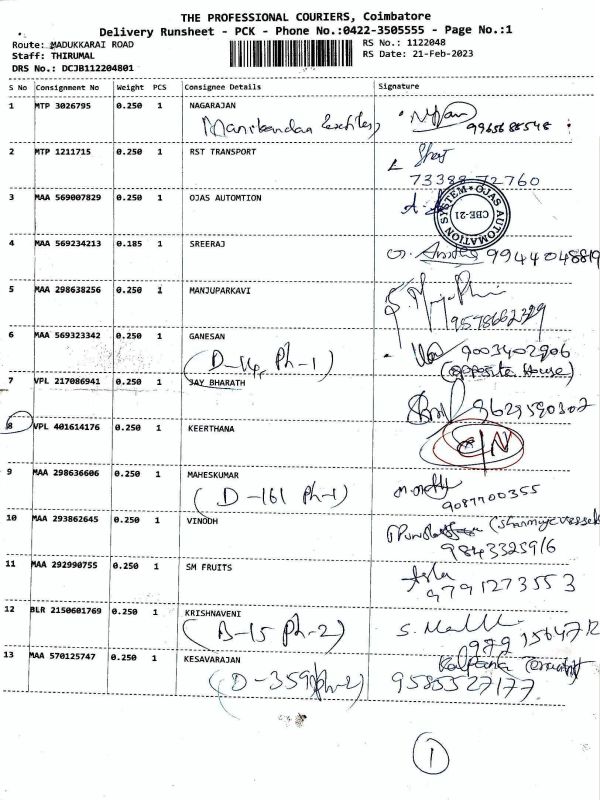 THE PROFESSIONAL COURIERS, Coimbatore
Delivery Runsheet - PCK - Phone No.:0422-3505555 - Page No.:1
Route: MADUKKARAI ROAD RS No.: 1122048
Staff: THIRUMAL RS Date: 21-Feb-2023
DRS No.: DCJB112204801
S No Consignment No Weight PCS Consignee Details Signature
1 MTP 3026795 0.250 1 NAGARAJAN
Manikandan 9965685548
2 MTP 1211715 0.250 1 RST TRANSPORT
73388 72760
3 MAA 569007829 0.250 1 OJAS AUTOMTION
OJAS AUTOMATION SYSTEM CBE-21
4 MAA 569234213 0.185 1 SREERAJ
9944048819
5 MAA 298638256 0.250 1 MANJUPARKAVI
9578662329
6 MAA 569323342 0.250 1 GANESAN
(D-14, Ph-1) 9003402906
(opposite House)
7 VPL 217086941 0.250 1 JAY BHARATH
9629590302
8 VPL 401614176 0.250 1 KEERTHANA
9 MAA 298636606 0.250 1 MAHESKUMAR
(D-161 Ph-1) 9087700355
10 MAA 293862645 0.250 1 VINODH
9843325916
11 MAA 292990755 0.250 1 SM FRUITS
9791273553
12 BLR 2150601769 0.250 1 KRISHNAVENI
(B-15 Ph-2)
13 MAA 570125747 0.250 1 KESAVARAJAN
Kalpana
(D-359 Ph-2) 9585527177
1